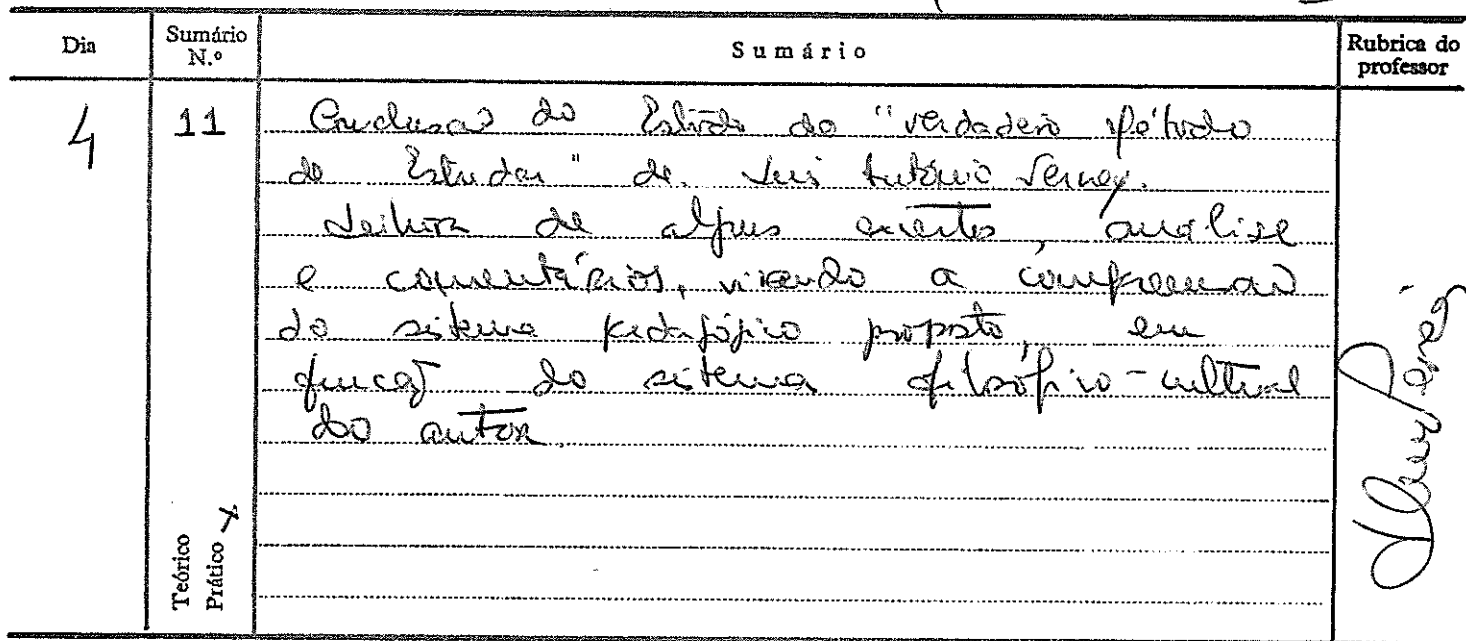 Dia
Sumário N.º
Sumário
Rubrica do professor
4
11
Conclusão do Estudo do "Verdadeiro Método
de Estudar" de Luis António Verney.
Leitura de alguns excertos, análise
e comentários, visando a compreensão
do sistema pedagógico proposto, em
função do sistema filosófico-cultural
do autor.
Teórico
Prático x